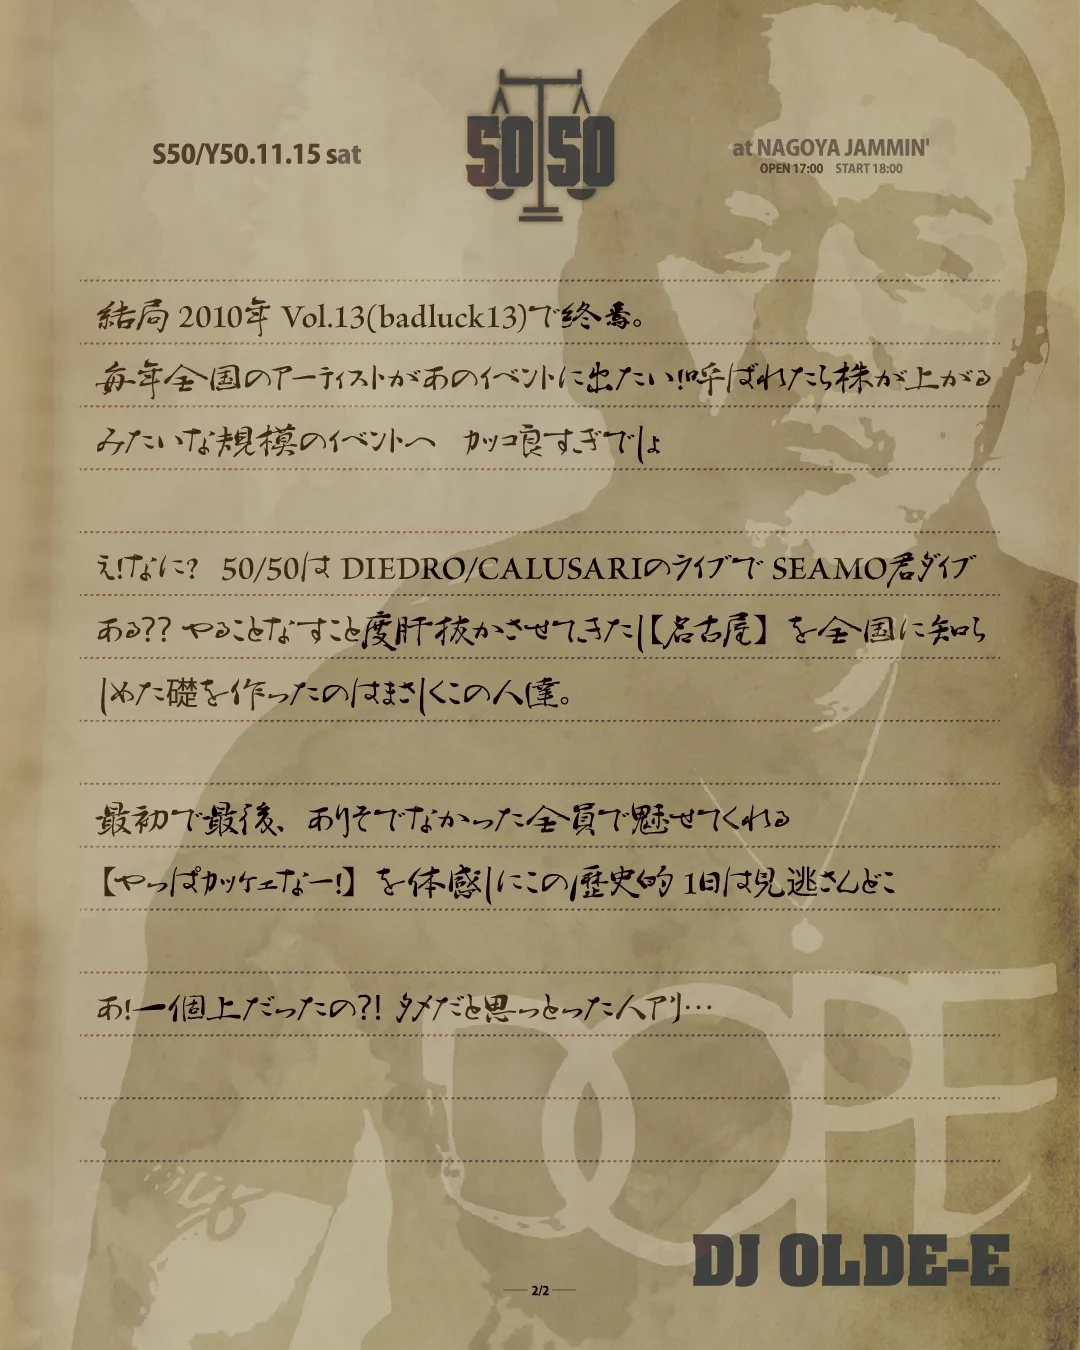 S50/Y50.11.15 sat
50 50
at NAGOYA JAMMIN'
OPEN 17:00 START 18:00
結局 2010年 Vol.13(badluck13)で終焉。
毎年全国のアーティストがあのイベントに出たい!呼ばれたら株が上がる
みたいな規模のイベントへ カッコ良すぎでしょ
え!なに? 50/50は DIEDRO/CALUSARIのライブで SEAMO君ダイブ
ある?? やることなすこと度肝抜かさせてきたし【名古屋】を全国に知ら
しめた礎を作ったのはまさしくこの人達。
最初で最後、ありそでなかった全員で魅せてくれる
【やっぱカッケェなー!】を体感しにこの歴史的 1日は見逃さんどこ
あ!一個上だったの?! タメだと思っとった人アリ…
DOPE
DJ OLDE-E
2/2